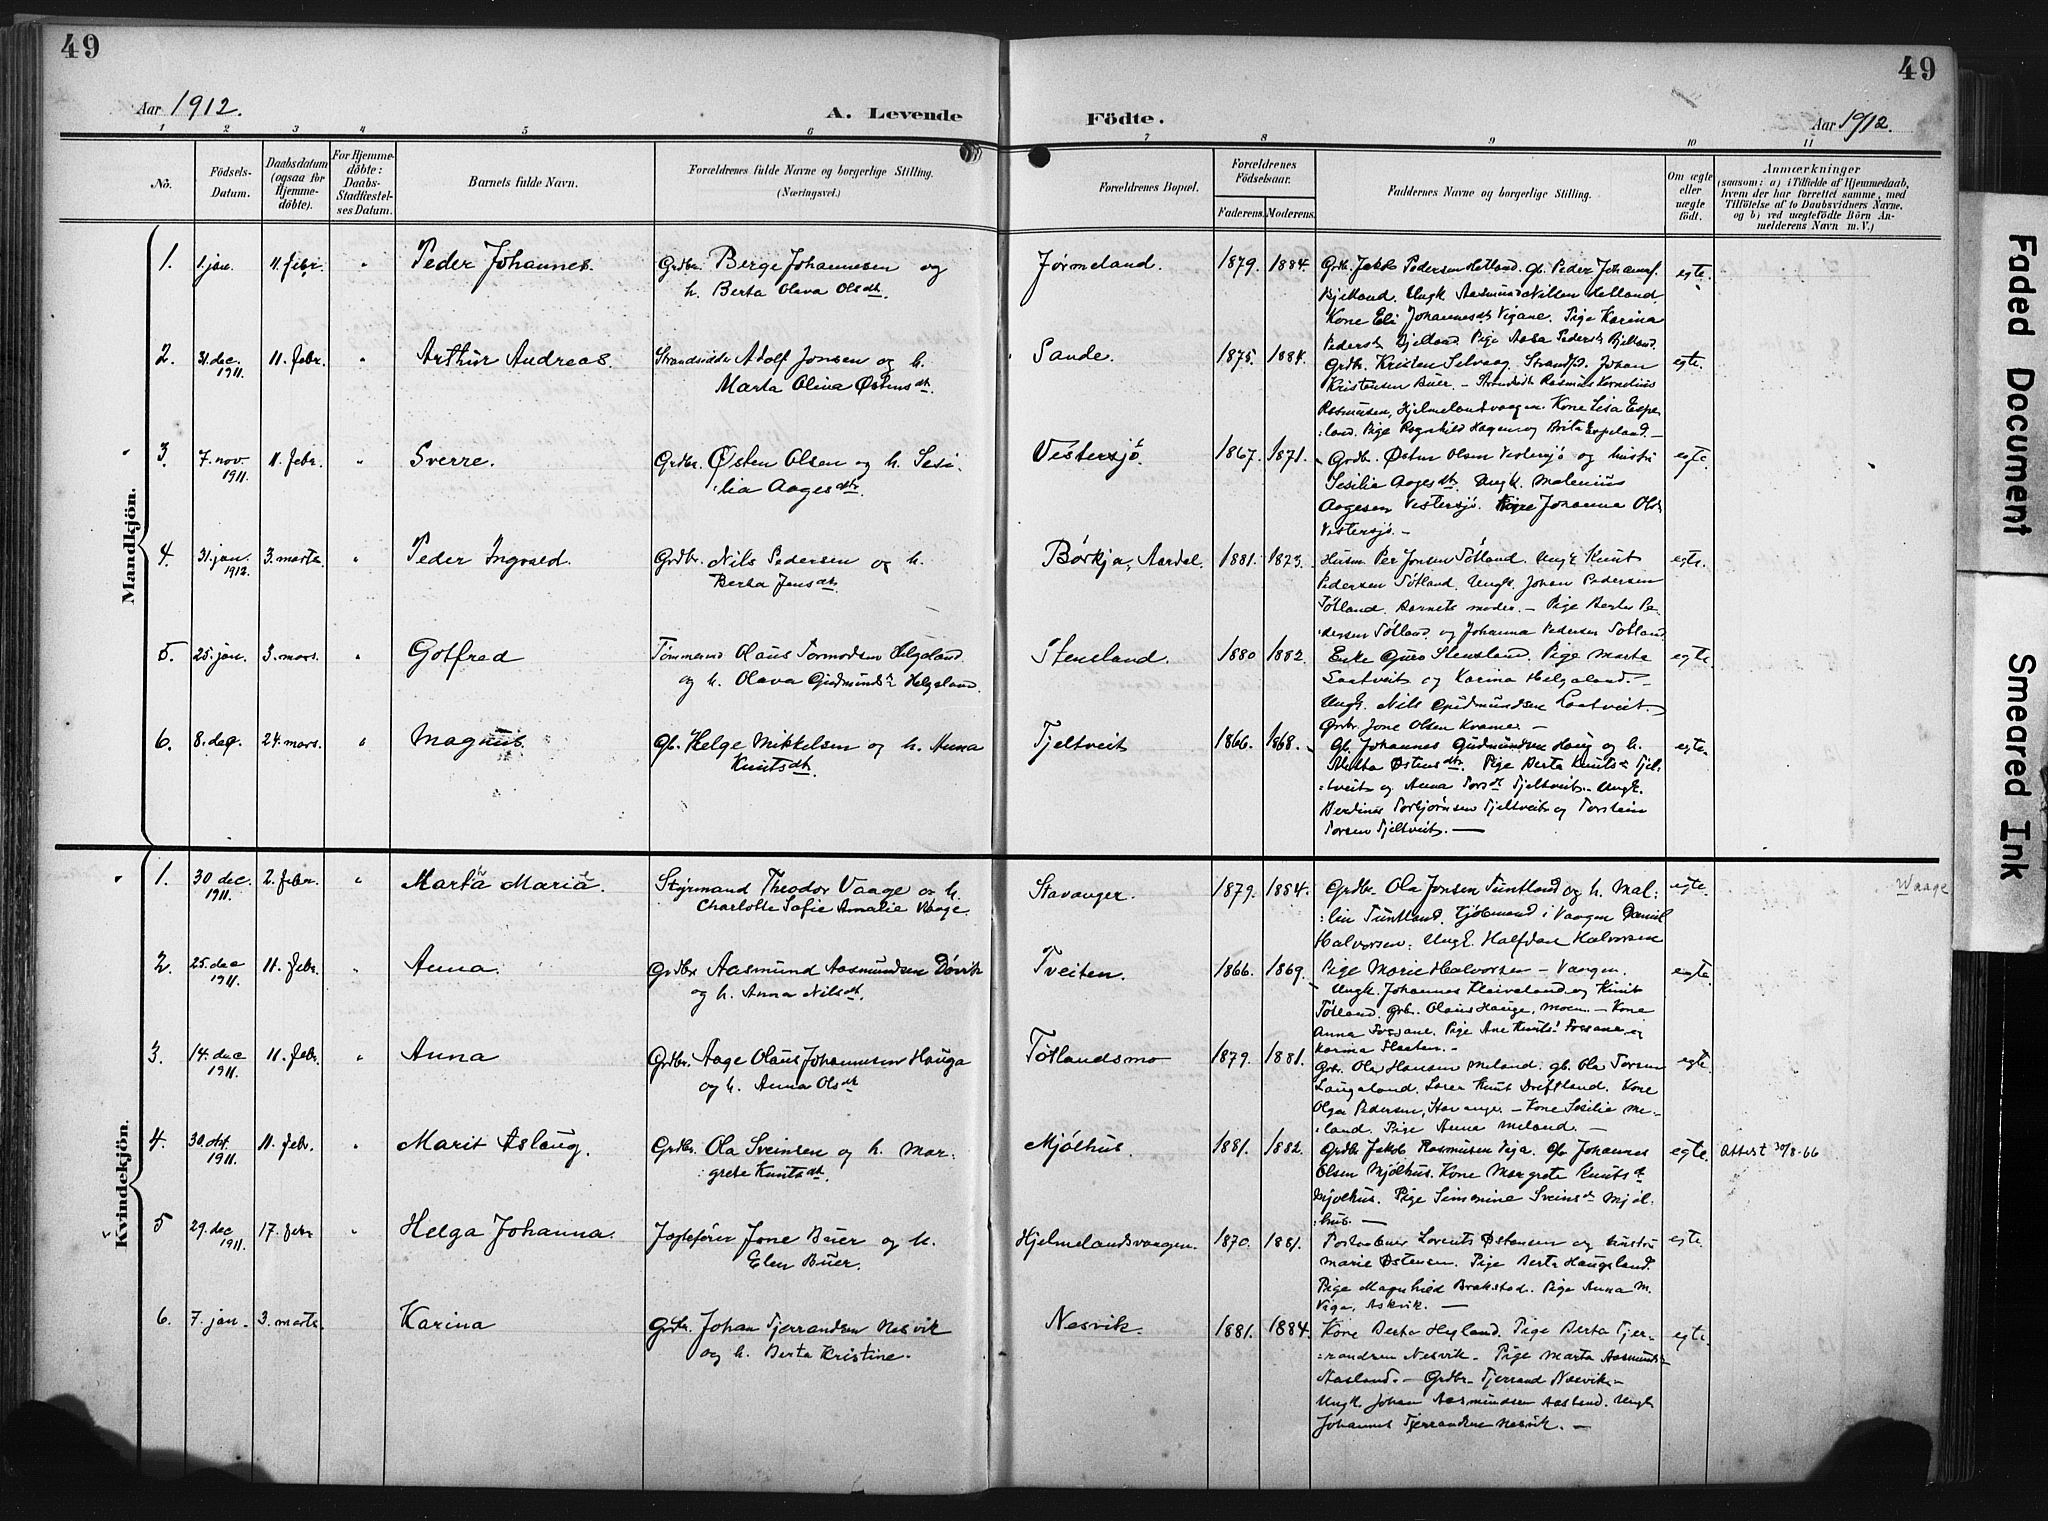 49
49
Aar 1912.
A. Levende
Födte.
Aar 1912.
1 2 3 4 5 6 7 8 9 10 11
No.
Födsels-Datum.
Daabsdatum (ogsaa for Hjemme-döbte).
For Hjemme-döbte: Daabs-Stadfæstel-ses Datum.
Barnets fulde Navn.
Forældrenes fulde Navne og borgerlige Stilling. (Næringsvei.)
Forældrenes Bopæl.
Forældrenes Födselsaar.
Faderens. Moderens.
Faddernes Navne og borgerlige Stilling.
Om ægte eller uægte födt.
Anmærkninger
(saasom: a) i Tilfælde af Hjemmedaab, hvem der har forrettet samme, med Tilföielse af to Daabsvidners Navne. og b) ved uægtefödte Börn An-melderens Navn m. V.)
Mandkjön.
1. 1 jan. 11. febr. " Peder Johannes. Grdbr. Berge Johannesen og
h. Berta Olava Olsdtr.
Jørmeland. 1879. 1884. Grdbr. Jakob Pedersen Hetland. Gb. Peder Johannes.
Bjelland. Ungk. Aasmund Nilsen Hetland.
Kone Eli Johannesdtr Vigane. Pige Karina
Pedersdt Bjelland. Pige Aasa Pedersdt Bjelland.
egte.
2. 31. dec. 1911. 11. febr. " Arthur Andreas. Strandsidder Adolf Jonsen og h.
Marta Olina Østensdtr.
Sande. 1875. 1884. Grdbr. Kristen Selvaag. Strands. Johan
Kristensen Buer. – Strandsidr Rasmus Kornelius
Rasmusen, Hjelmelandvaagen. Kone Lisa Espe-
:land. Pige Ragnhild Hagen og Brita Espeland. –
egte.
3. 7. nov. 1911. 11. febr. " Sverre. Grdbr. Østen Olsen og h. Sesi-
:lia Aagesdtr.
Vestersjø. 1867. 1871. Grdbr. Østen Olsen Vestersjø og hustru
Sesilia Aagesdtr. Ungk. Malenius
Aagesen Vestersjø. Pige Johanna Olsdt
Vestersjø. –
egte.
4. 31. jan. 1912. 3. marts. " Peder Ingvald. Grdbr. Nils Pedersen og h.
Berta Jensdtr.
Børkja, Aardal. 1881. 1873. Husm. Per Jonsen Tøtland. Ungk. Knut
Pedersen Tøtland. Ungk. Johan Pedersen
Tøtland. Barnets moder. – Pige Berta Pe-
:dersen Tøtland og Johanna Pedersen Tøtland.
egte.
5. 25. jan. 3. mars. " Gotfred Tømmermd Olaus Tormodsen Helgeland
og h. Olava Gudmundsdt Helgeland.
Stensland. 1880 1882. Enke Guro Stensland. Pige Marta
Laatveit og Karina Helgaland. –
Ungk. Nils Gudmundsen Laatveit.
Grdbr Jone Olsen Kvame. –
egte.
6. 8. dec. 24. mars. " Magnus. Gb. Helge Mikkelsen og h. Anna
Knutsdtr.
Tjeltveit 1866. 1868. Gb. Johannes Gudmundsen Haug og h.
Marta Østensdtr. Pige Berta Knutsdt Tjel-
:tveit og Anna Torsdt Tjeltveit. – Ungk.
Berdines Torbjørnsen Tjeltveit og Torstein
Torsen Tjeltveit. –
egte.
Kvindekjön.
1. 30 dec. 1911. 2. febr. " Marta Maria. Styrmand Theodor Vaage og h.
Charlotte Sofie Amalie Vaage.
Stavanger. 1879. 1884. Grdbr. Ola Jonsen Tuntland og h. Mal:
:lin Tuntland. Kjøbmand i Vaagen Daniel
Halvorsen. Ungk. Halfdan Halvorsen
Pige Marie Halvorsen – Vaagen.
egte. Waage
2. 25. dec 1911. 11. febr. " Anna. Grdbr Aasmund Aasmundsen Døvik
og h. Anna Nilsdtr.
Tveiten. 1866. 1869. Ungk. Johannes Kleiveland og Knut
Tøtland. Grb. Olaus Hauge, Moen. – Kone
Anna Fossane. Pige Ane Knuts Fossane og
Karina Flaaten. –
egte.
3. 14. dec 1911. 11. febr. " Anna Grdbr. Aage Olaus Johannesen Hauga
og h. Anna Olsdtr
Tøtlandsmo 1879. 1881. Grb. Ola Hansen Meland. Gb. Ola Torsen
Laugaland. Lærer Knut Driftland. Kone
Olga Pedersen, Stavanger. – Kone Sesilie Me-
:land. Pige Anna Meland. –
egte.
4. 30. okt. 1911. 11. febr. " Marit Aslaug. Grdbr. Ola Sveinsen og h. Mar-
:grete Knutsdtr.
Mjølhus. 1881. 1882. Grdbr Jakob Rasmusen Veja. Gb. Johannes
Olsen Mjølhus. Kone Margrete Knutsdt
Mjølhus. Pige Simmine Sveinsdt Mjøl-
:hus. –
egte. Attest 30/8-66
5 29. dec 1911. 17. febr " Helga Johanna. Jagtefører Jone Buer og h.
Elen Buer.
Hjelmelandsvaagen. 1870. 1881. Postaabner Lorents Østensen og hustru
Marie Østensen. Pige Berta Haugsland.
Pige Magnhild Brakstad. Pige Anna M.
Viga, Askvik. –
egte.
6. 7. jan. 3. marts. Karina Grdbr. Johan Tjerrandsen Nesvik
og h. Berta Kristine.
Nesvik. 1881. 1884. Kone Berta Hegland. Pige Berta Tjer-
:randsen Nesvik. Pige Marta Aasmunds-
Aasland. – Grdbr. Tjerrand Nesvik. –
Ungk. Johan Aasmundsen Aasland. Ungk
Johannes Tjerrandsen Nesvik. –
egte.
Faded Document
Smeared Ink